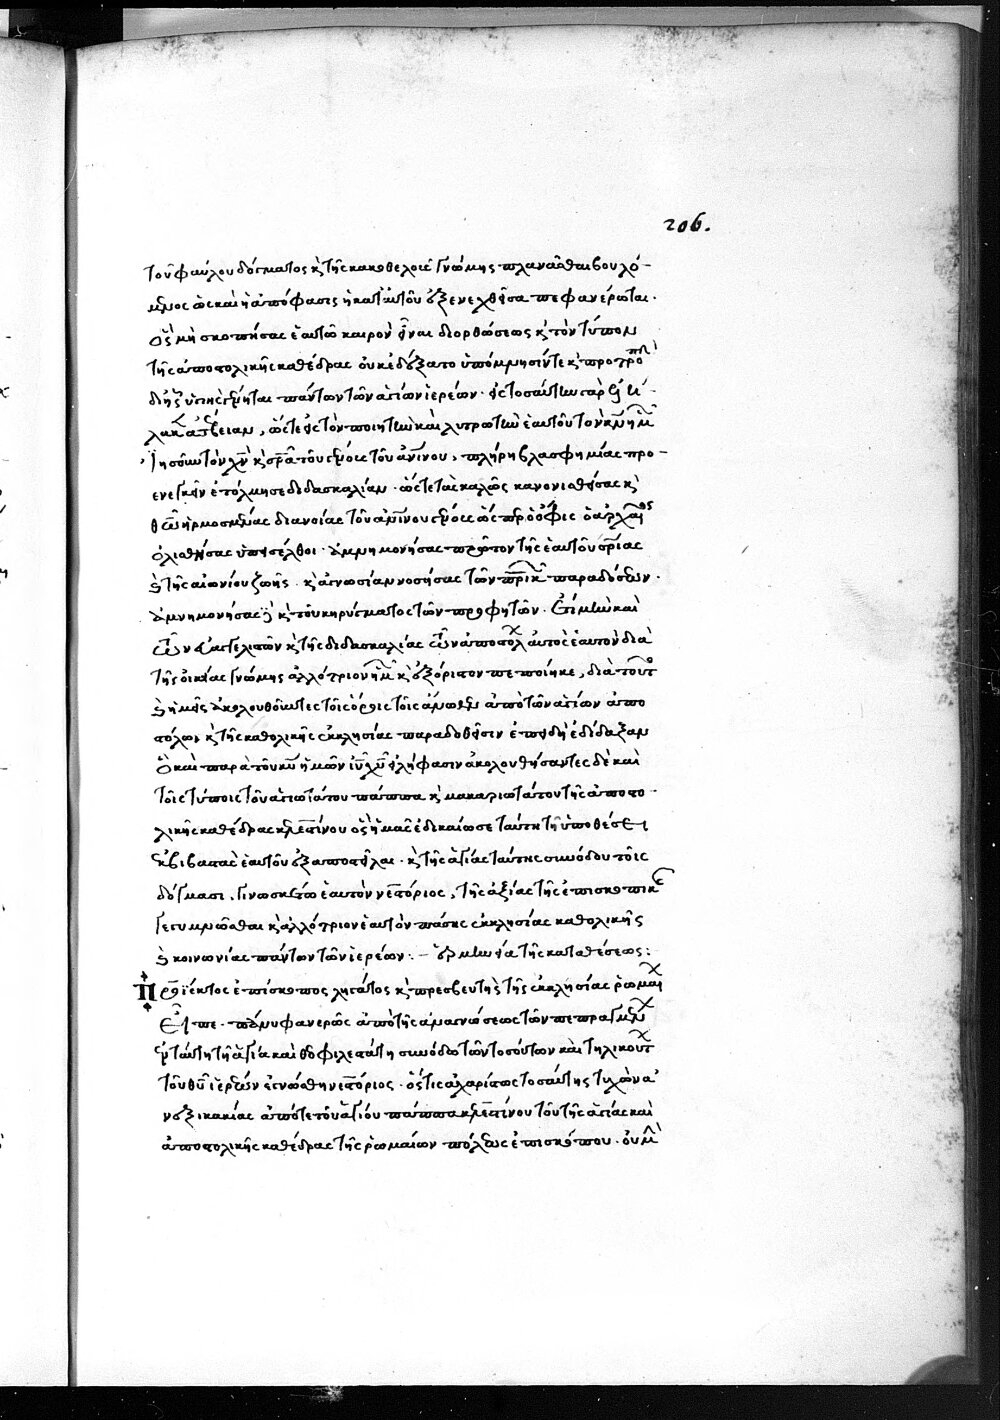 206.
τοῦ φαύλου δόγματος κ τῆς κακοθελοῦς γνώμης πλανᾶσθαι βουλό-
μενος ὡς καὶ ἡ ἀπόφασις ἡ κατ' αὐτοῦ ἐξενεχθεῖσα πεφανέρωται.
ὃς μὴ σκοπήσας ἑαυτῶ καιρὸν εἶναι διορθώσεως κ τὸν τύπον
τῆς ἀποστολικῆς καθέδρας οὐκ ἐδέξατο ὑπόμνησίν τε κ προτροπὴ
πάντων τῶν ἁγίων ἱερέων.
ὥστε εἰς τὸν ποιητὴν καὶ λυτρωτὴν ἑαυτοῦ τὸν κν ἡμ
Ἰησοῦν τὸν χν κ σρα τοῦ κόσμου τοῦ πλήρη βλασφημίας προ-
ενεγκεῖν ἐτόλμησε διδασκαλίαν. ὥστε τὰς καλῶς κανονισθείσας κ
διανοίας ὁ ὄφις ὁ ἀρχαῖος
ὀλισθήσας ὑπεισέλθοι. ἀμνημονήσας πρῶτον τῆς ἑαυτοῦ σριας
κ τῆς αἰωνίου ζωῆς. κ ἀγνωσίαν νοσήσας τῶν πρικ παραδόσεων.
ἀμνημονήσας δ κ τοῦ κηρύγματος τῶν προφητῶν. ἔτι μὴν καὶ
τῶν εὐαγγελιστῶν κ τῆς διδασκαλίας τῶν ἀποστολ αὐτὸς ἑαυτὸν διὰ
τῆς οἰκείας γνώμης ἀλλότριον ἡμ κ ἐξόριστον πεποίηκε, διὰ τοῦτο
κ ἡμεῖς ἀκολουθοῦντες τοῖς ὅροις τοῖς ἄνωθεν ἀπὸ τῶν ἁγίων ἀπο
στόλων κ τῆς καθολικῆς ἐκκλησίας παραδοθεῖσιν ἐπειδὴ ἐδίδαξαν
ὃ καὶ παρὰ τοῦ κυ ἡμῶν ιυ χυ εἰλήφασιν ἀκολουθήσαντες δὲ καὶ
τοῖς τύποις τοῦ ἁγιωτάτου πάππα κ μακαριωτάτου τῆς ἀποστο-
λικῆς καθέδρας κελεστίνου ὃς ἡμᾶς ἐδικαίωσε ταύτη τῆ ὑποθέσει
ἐκβιβαστὰς ἑαυτοῦ ἐξαποστεῖλαι. κ τῆς ἁγίας ταύτης συνόδου τοῖς
δόγμασι, γινωσκέτω ἑαυτὸν νεστόριος, τῆς ἀξίας τῆς ἐπισκοπικῆς
γεγυμνῶσθαι κ ἀλλότριον ἑαυτὸν πάσης ἐκκλησίας καθολικῆς
κ κοινωνίας πάντων τῶν ἱερέων:- ἑρμηνεία τῆς καταθέσεως:
Προΐεκτος ἐπίσκοπος ληγάτος κ πρεσβευτὴς τῆς ἐκκλησίας ῥωμαι
εἶπε. πάνυ φανερῶς ἀπὸ τῆς ἀναγνώσεως τῶν πεπραγμέν
ἐν ταύτη τῆ ἁγία καὶ θεοφιλεστάτη συνόδω τῶν τοσούτων καὶ τηλικούτ
τοῦ θυ ἱερέων ἐγνώσθη νεστόριος. ὅστις ἀχαρίστως τοσαύτης τυχὼν ἀ
νεξικακίας ἀπό τε τοῦ ἁγίου πάππα κελεστίνου τοῦ τῆς ἁγίας καὶ
ἀποστολικῆς καθέδρας τῆς ῥωμαίων πόλεως ἐπισκόπου. οὐ μ